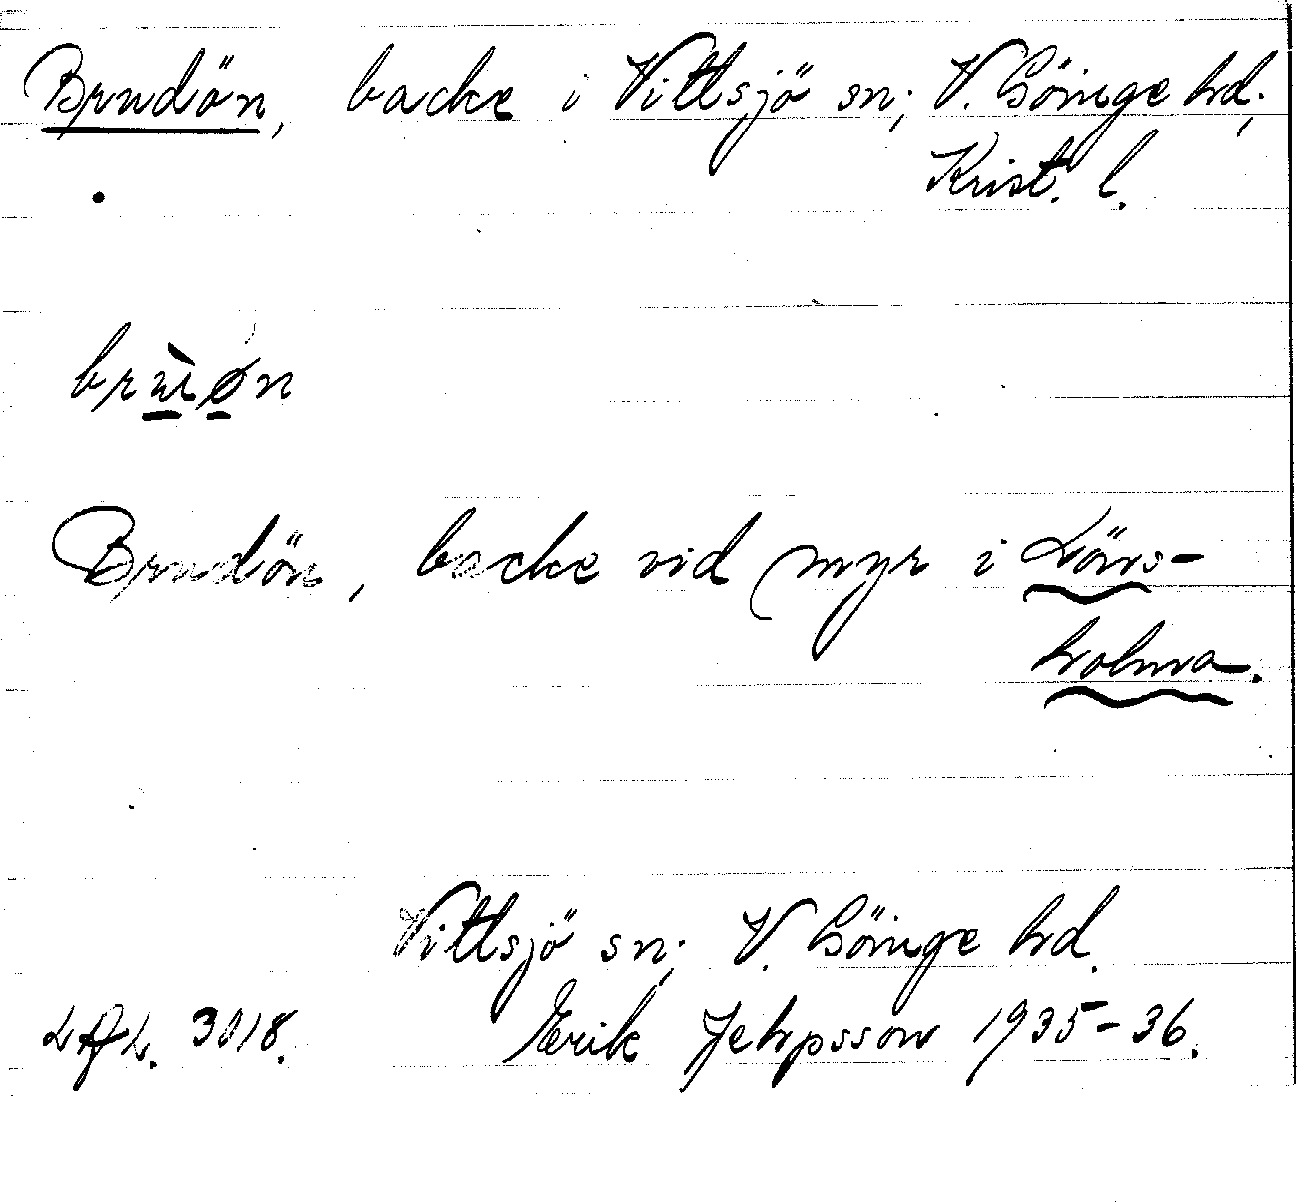 Brudön, backe i Vittsjö sn; V. Göinge hd;
Krist. l.
Brudön, backe vid myr i
Vittsjö sn; V. Göinge hd.
3018. Erik Jeppsson 1935-36.